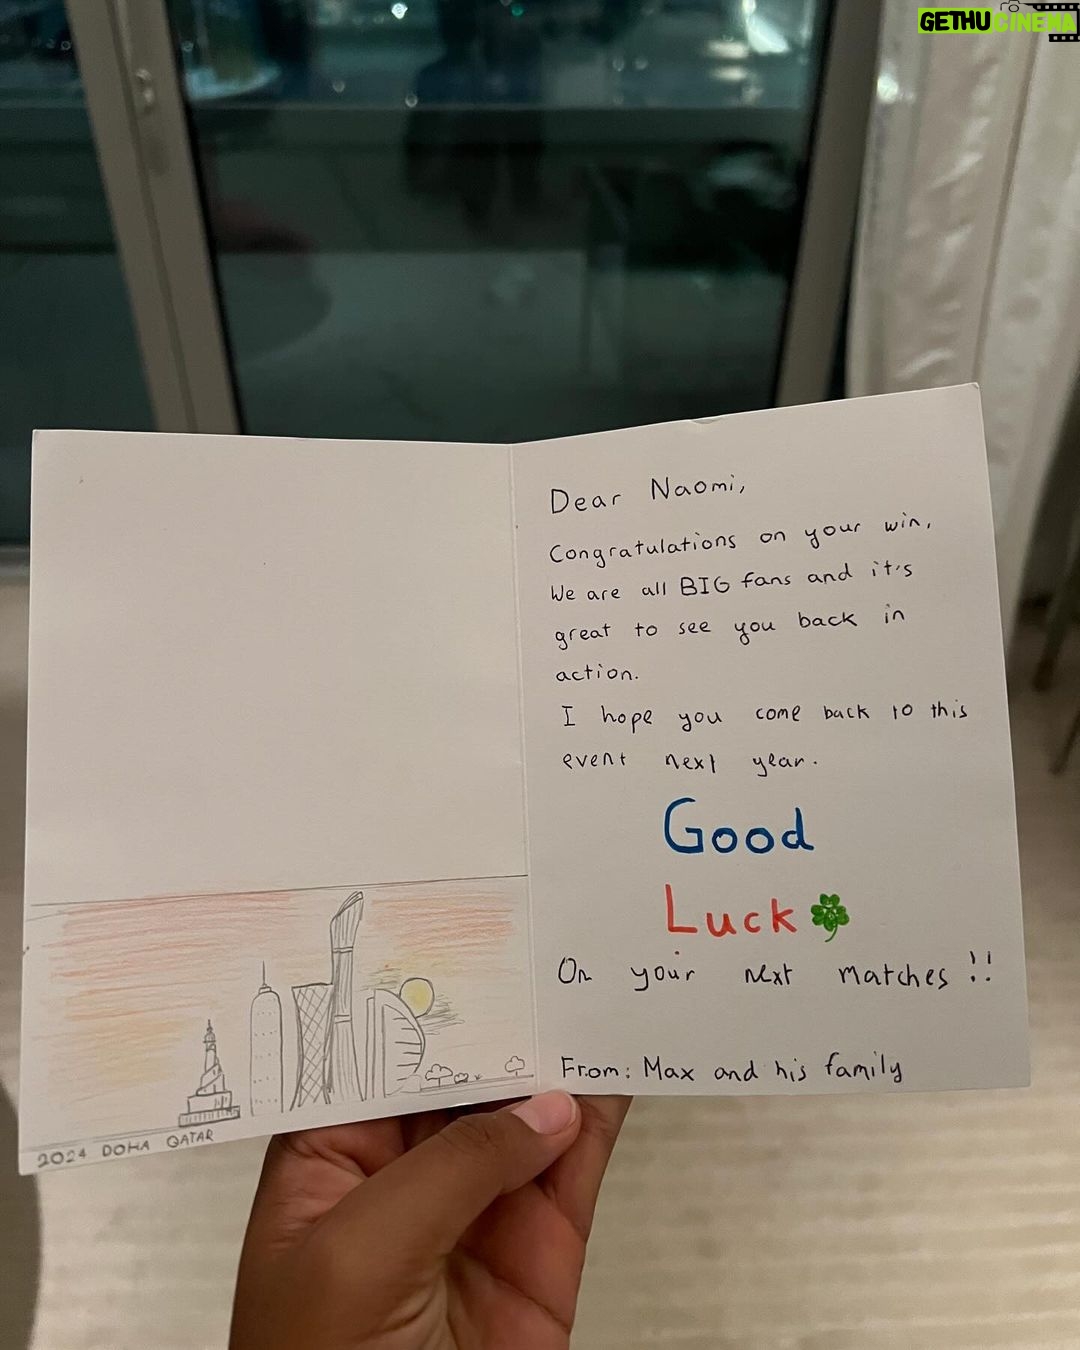 GETHUCINEMA
Dear Naomi,
Congratulations on your win,
We are all BIG fans and it's
great to see you back in
action.
I hope you come back to this
event next year.
Good
Luck
On your next matches !!
From: Max and his family
2024 DOHA QATAR